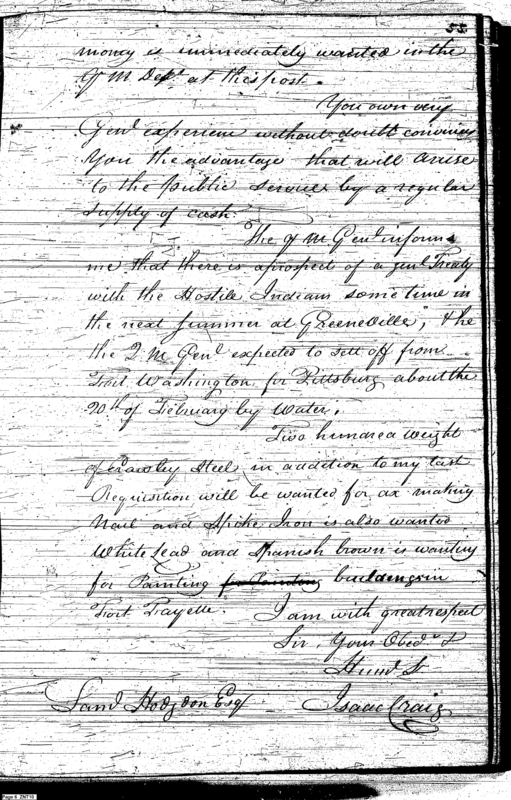 55
money is immediately wanted in the
Q M Dept at this post.
You own very
Genl experience without doubt convinces
you the advantage that will arise
to the public service by a regular
supply of cash.
The Q M Genl informs
me that there is a prospect of a genl Treaty
with the Hostile Indians some time in
the next summer at Greeneville, & he
the Q M Genl expected to sett off from
Fort Washington for Pittsburg about the
20th of February by water.
Two hundred weight
of Crawley Steel in addition to my last
Requisition will be wanted for ax making
Nail and Spike Iron is also wanted
White lead and Spanish brown is wanting
for Painting buildings in
Fort Fayette. I am with great respect
Sir, Your Obedt
Humb S
Saml Hodgdon Esqr Isaac Craig
Page 6 ZNT10